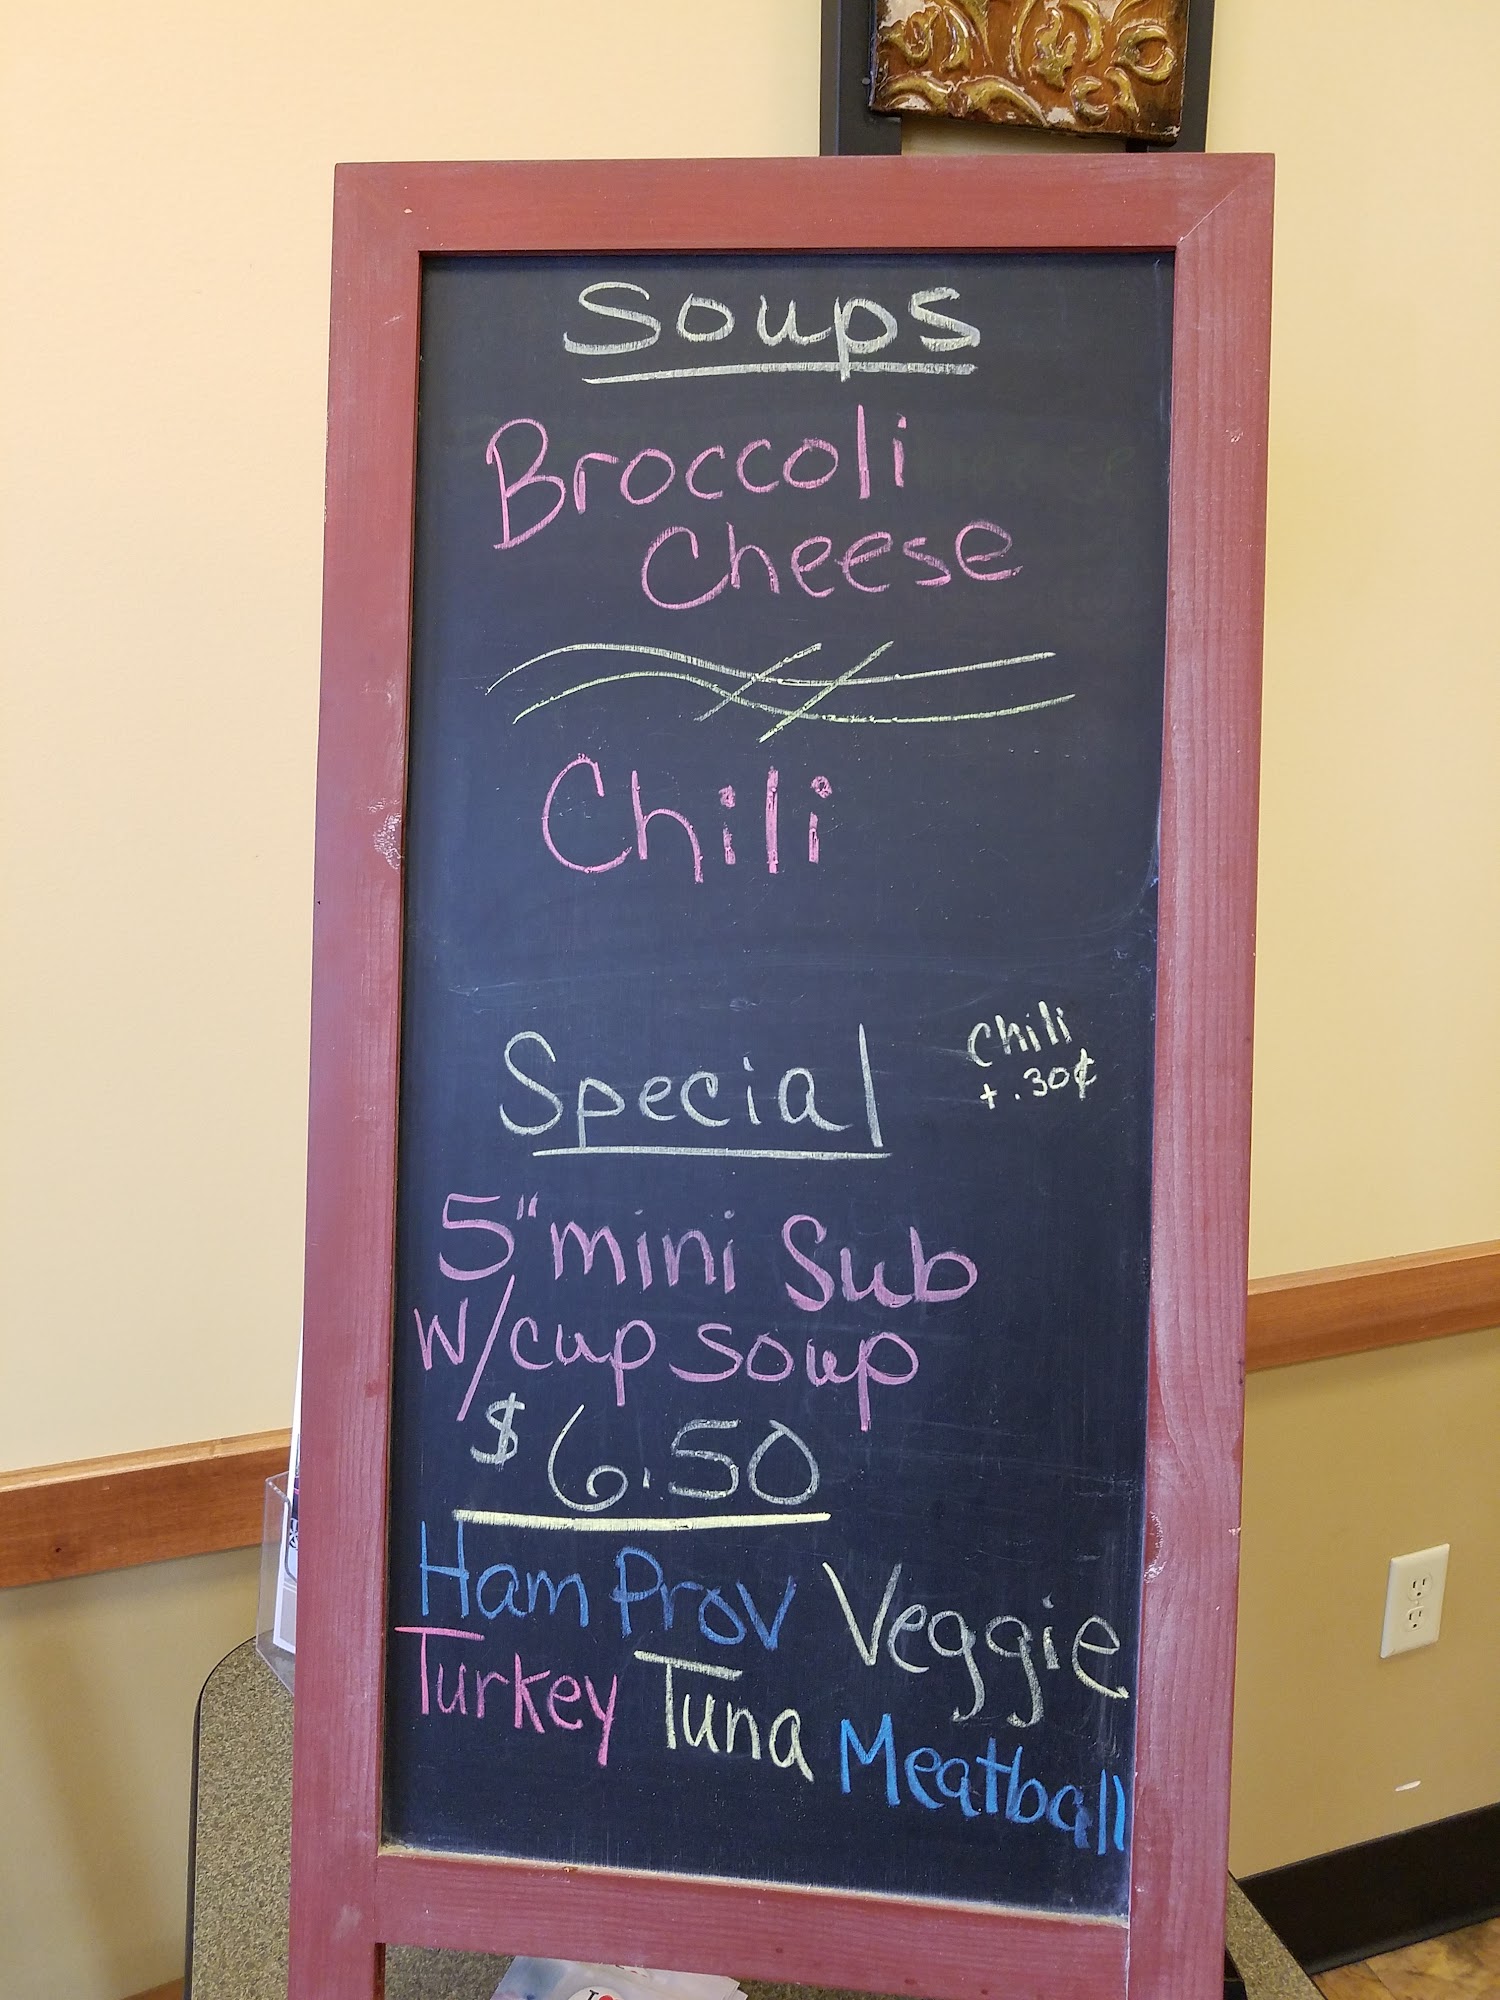 Soups
Broccoli
Cheese
Chili
Special
Chili
+ .30¢
5" mini Sub
w/cup soup
$6.50
Ham Prov Veggie
Turkey Tuna Meatball